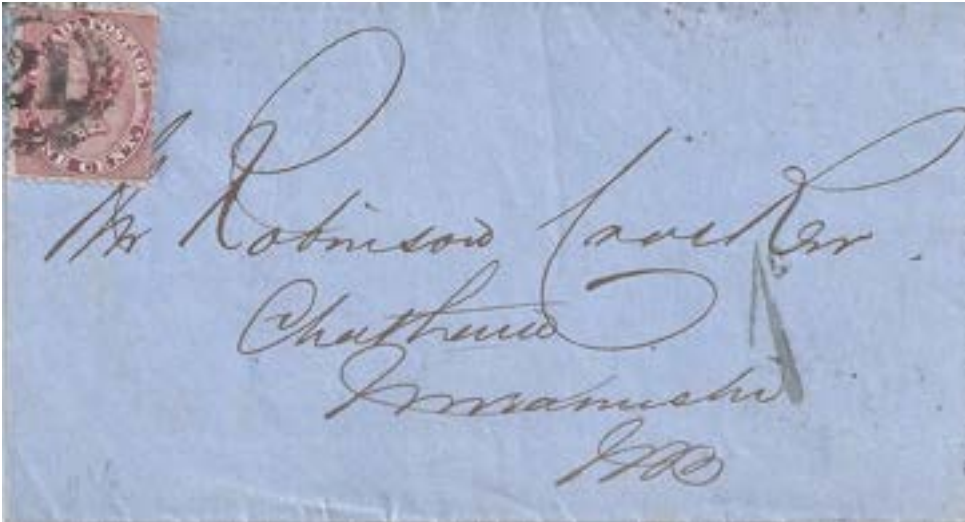 CANADA POSTAGE
CENTS
Mr Robinson Crocker.
Chatham
Miramichi
NB